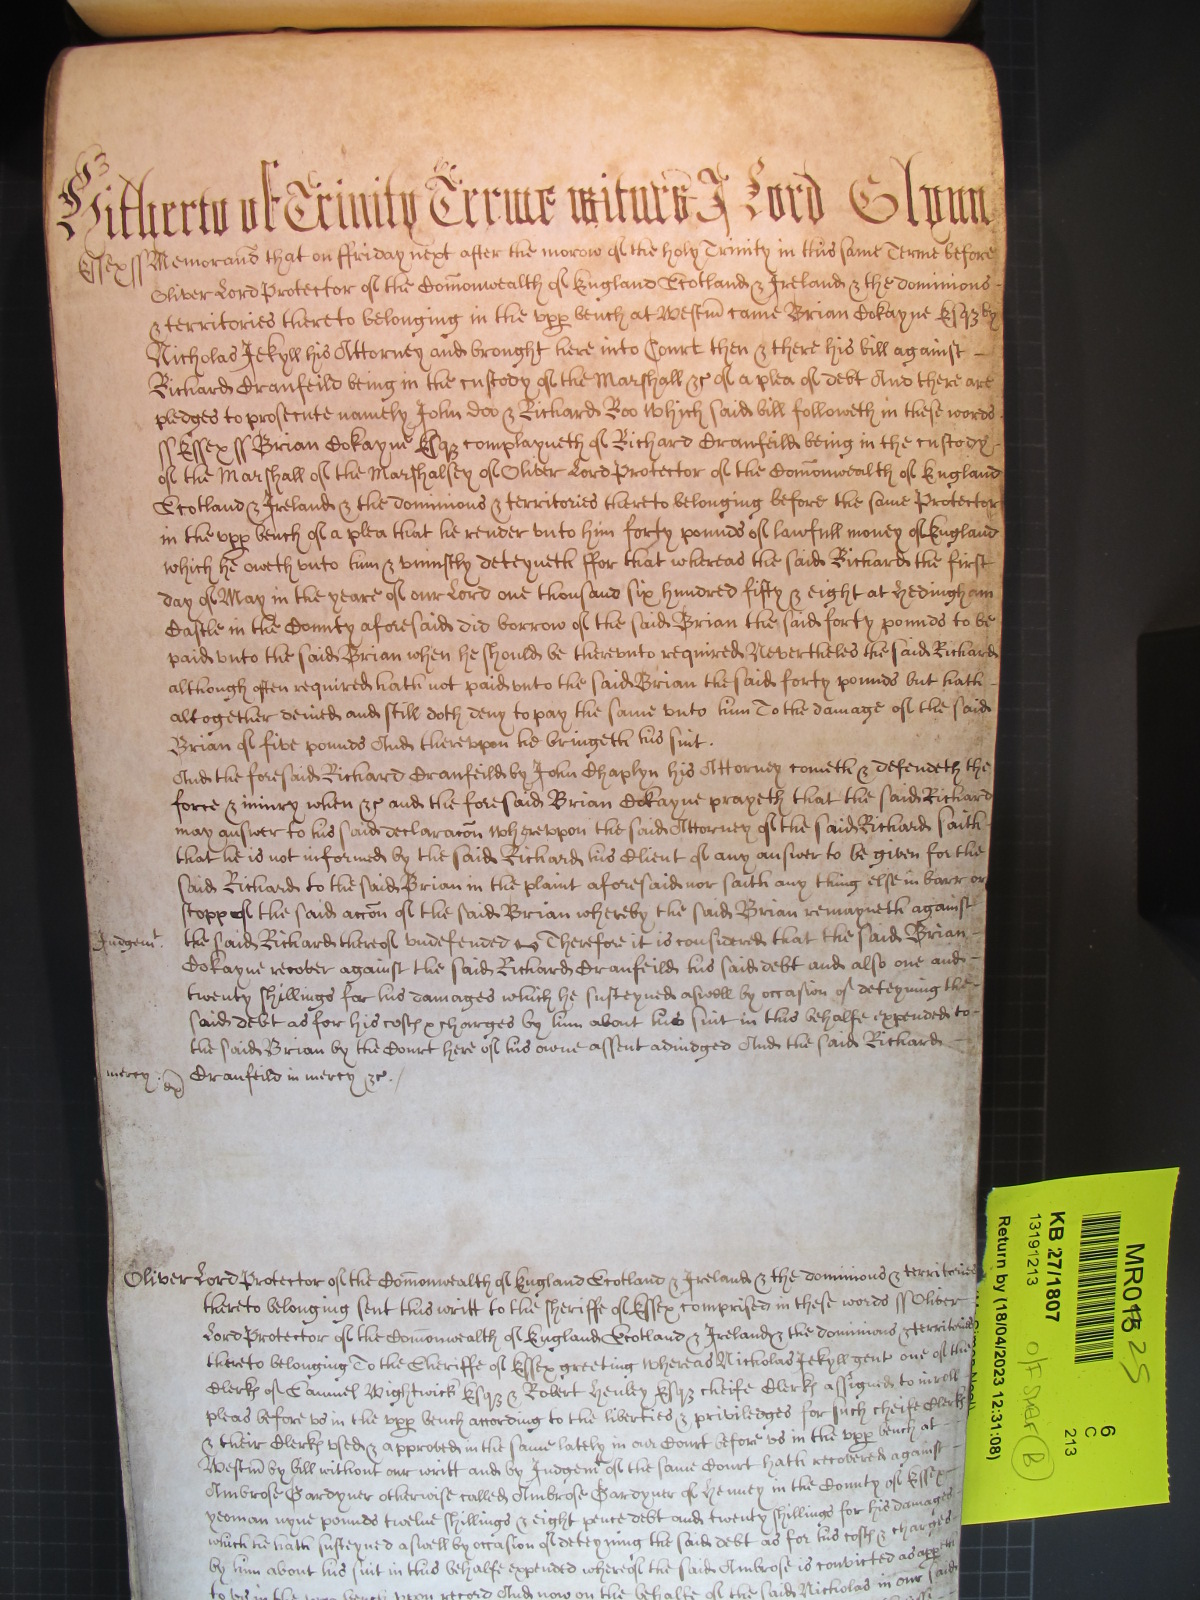 Hitherto of Trinity Terme witnes J Lord Glynn
Essex ss Memorand that on ffriday next after the morow of the holy Trinity in this same Terme before
Oliver Lord Protector of the Com̄onwealth of England Scotland & Ireland & the dominions
& territories thereto belonging in the vpp bench at Westm̄ came Brian Cokayne Esqz by
Nicholas Jekyll his Attorney and brought here into Court then & there his bill against
Richard Cranfeild being in the custody of the Marshall &c of a plea of debt And there are
pledges to prosecute namely John Doo & Richard Roo Which said bill followeth in these words
ss Essex ss Brian Cokayne Esqz complayneth of Richard Cranfeild being in the custody
of the Marshall of the Marshalsey of Oliver Lord Protector of the Com̄onwealth of England
Scotland & Ireland & the dominions & territories thereto belonging before the same Protector
in the vpp bench of a plea that he render vnto him forty pounds of lawfull money of England
which he oweth vnto him & viniustly deteyneth ffor that whereas the said Richard the first
day of May in the yeare of our Lord one thousand six hundred fifty & eight at Hedingham
Castle in the County aforesaid did borrow of the said Brian the said forty pounds to be
paid vnto the said Brian when he should be therevnto required Nevertheles the said Richard
although often required hath not paid vnto the said Brian the said forty pounds but hath
altogether denied and still doth deny to pay the same vnto him To the damage of the said
Brian of five pounds And therevpon he bringeth his suit.
And the foresaid Richard Cranfeild by John Chaplyn his Attorney cometh & defendeth the
force & iniury when &c and the foresaid Brian Cokayne prayeth that the said Richard
may answer to his said declarac̄on Wherevpon the said Attorney of the said Richard saith
that he is not informed by the said Richard his Client of any answer to be given for the
said Richard to the said Brian in the plaint aforesaid nor saith any thing else in barr or
stopp of the said acc̄on of the said Brian whereby the said Brian remayneth against
Judgemt. the said Richard thereof vndefended Therefore it is considered that the said Brian
Cokayne recover against the said Richard Cranfeild his said debt and also one and
twenty shillings for his damages which he susteyned aswell by occasion of deteyning the
said debt as for his costs & charges by him about his suit in this behalfe expended to
the said Brian by the Court here of his owne assent adiudged And the said Richard
mercy: Cranfeild in mercy &c.
Oliver Lord Protector of the Com̄onwealth of England Scotland & Ireland & the dominions & territories
thereto belonging sent this writt to the sheriffe of Essex comprised in these words ss Oliver
Lord Protector of the Com̄onwealth of England Scotland & Ireland & the dominions & territories
thereto belonging To the Sheriffe of Essex greeting Whereas Nicholas Jekyll gent one of the
Clerks of Samuel Wightwick Esqz & Robert Henley Esqz cheife Clerks assigned to inroll
pleas before vs in the vpp bench according to the liberties & priviledges for such cheife Clerks
& their Clerks vsed & approved in the same lately in our Court before vs in the vpp bench at
Westm̄ by bill without our writt and by Judgemt of the same Court hath recovered against
Ambrose Gardyner otherwise called Ambrose Gardyner of Henney in the County of Essex
yeoman nyne pounds twelve shillings & eight pence debt and twenty shillings for his damages
which he hath susteyned aswell by occasion of deteyning the said debt as for his costs & charges
by him about his suit in this behalfe expended whereof the said Ambrose is convicted as appeth
to vs in the vpp bench vpon record And now on the behalfe of the said Nicholas in our said
MR018 25
KB 27/1807
13191213
Return by (18/04/2023 12:31:08)
6
C
213
off Shar (B)